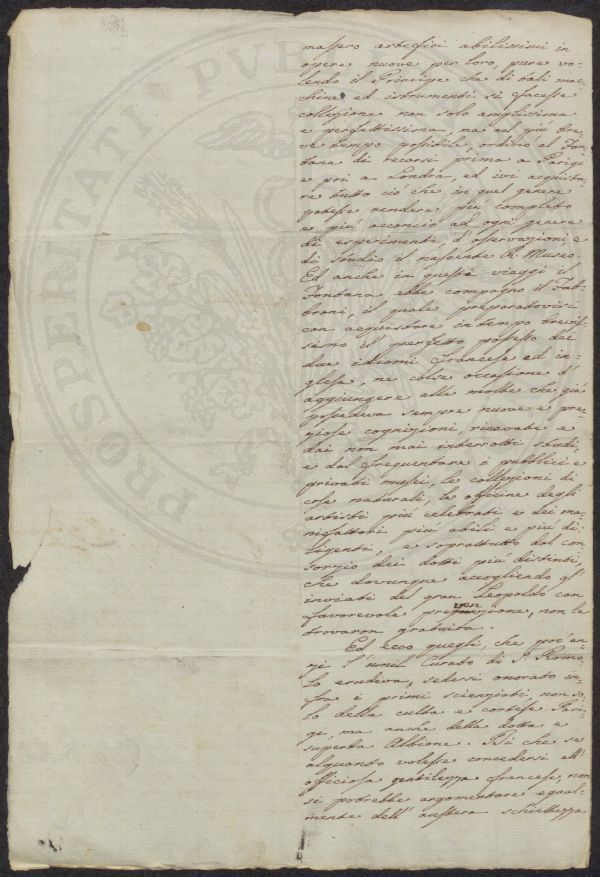 PROSPERITATI PVB
nassero artefici abilissimi in
opere nuove per loro, pure vo-
lendo il Principe che di tali mac-
chine ed istrumenti si facesse
collezione non solo amplissima
e perfettissima, ma nel più bre-
ve tempo possibile, ordinò al Fon-
tana di recarsi prima a Parigi
e poi a Londra, ed ivi acquista-
re tutto ciò che in quel genere
potesse rendere più completo
e più acconcio ad ogni genere
di esperimenti, d'osservazioni e
di studio il nascente R. Museo.
Ed anche in questi viaggi il
Fontana ebbe compagno il Fab-
broni, il quale preparatovisi
con acquistare in tempo brevis-
simo il perfetto possesso dei
due idiomi francese ed in-
glese, ne colse occasione d'
aggiungere alle molte che già
possedeva sempre nuove e pre-
ziose cognizioni, ricavate e
dai non mai interrotti studi,
e dal frequentare i pubblici e
privati musei, le collezioni di
cose naturali, le officine degli
artisti più celebrati e dei ma-
nifattori più abili e più di-
ligenti, e soprattutto dal con-
sorzio dei dotti più distinti,
che dovunque accogliendo gl'
inviati del gran Leopoldo con
favorevole prevenzione, non la
trovaron gratuita.
Ed ecco quegli, che poc'an-
zi l'umil Curato di S. Romo-
lo erudiva, sedersi onorato in-
fra i primi scienziati, non so-
lo della culta e cortese Pari-
gi, ma anche della dotta e
superba Albione. Di che se
alquanto volesse concedersi all'
officiosa gentilezza francese, non
si potrebbe argomentare egual-
mente dell'austera schiettezza